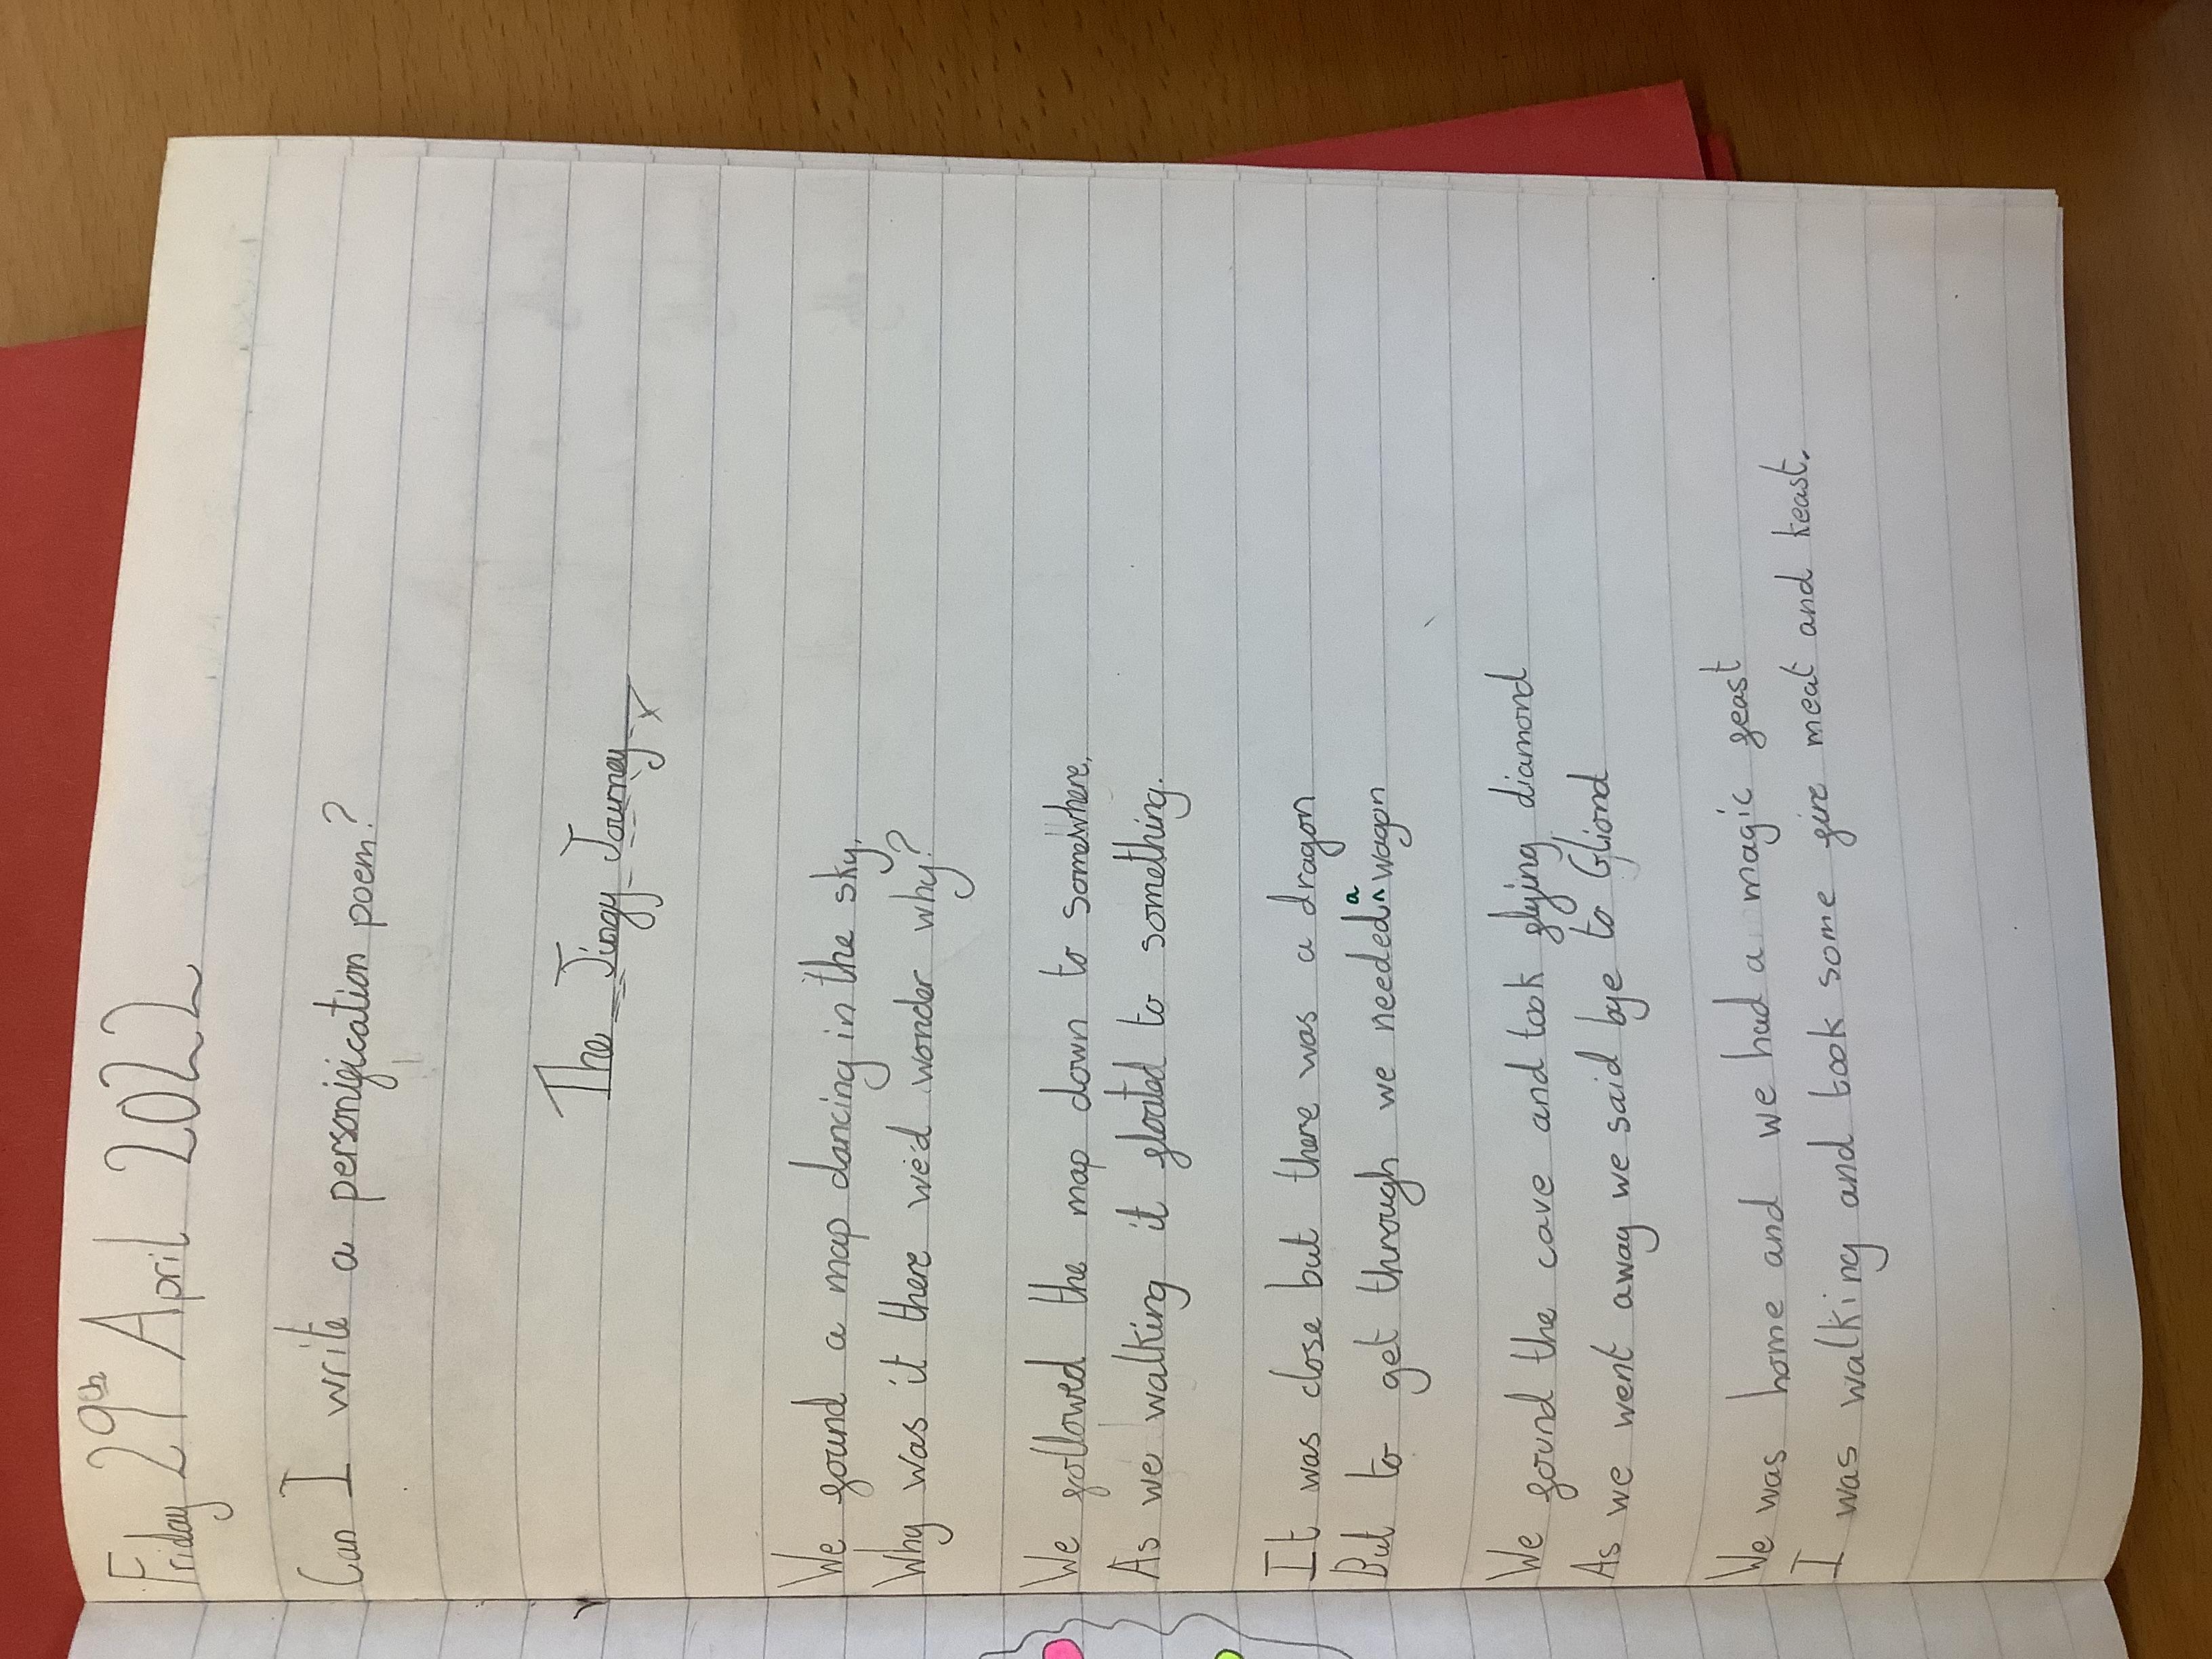 Friday 29th April 2022
Can I write a personification poem?
The Jingy Journey
We found a map dancing in the sky,
Why was it there we'd wonder why?
We followed the map down to somewhere,
As we walking it floated to something.
It was close but there was a dragon
But to get through we needed a wagon
We found the cave and took flying diamond
As we went away we said bye to Gliond
We was home and we had a magic feast
I was walking and took some fire meat and keast.